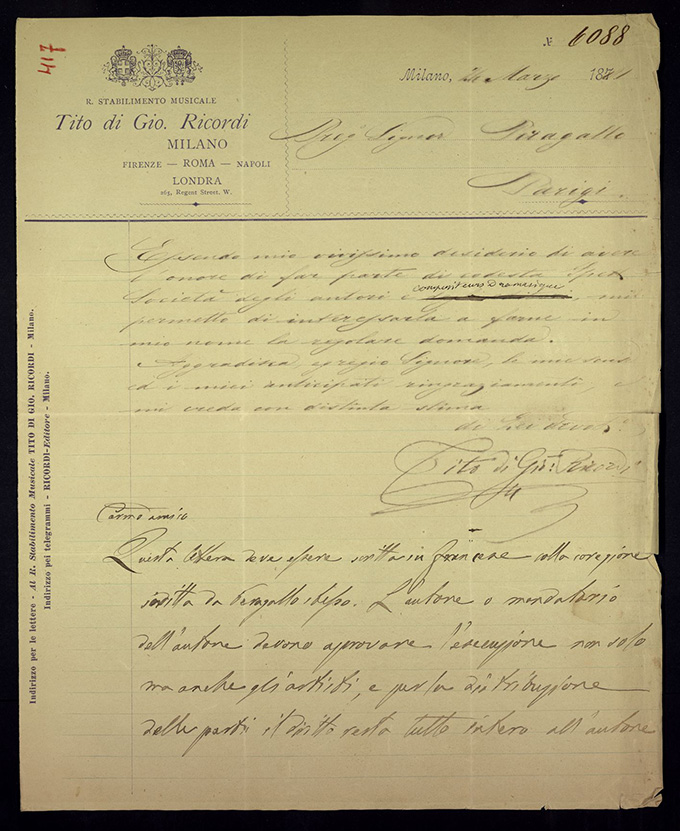 417
№ 6088
Milano, 24 Marzo 1881
R. STABILIMENTO MUSICALE
Tito di Gio. Ricordi
MILANO
FIRENZE — ROMA — NAPOLI
LONDRA
265, Regent Street. W.
Preg Signor Peragallo
Parigi.
Essendo mio vivissimo desiderio di avere
l'onore di far parte di codesta Spet
Società degli autori e compositeurs Dramatique, mi
permetto di interessarla a farne in
mio nome la regolare domanda.
Aggradisca egregio Signore, le mie scuse
ed i miei anticipati ringraziamenti, e
mi creda con distinta stima
di Lei devot
Tito di Gio. Ricordi
Carmo amico
Questa lettera deve essere scritta in francese colla coregione
scritta da Peragallo stesso. L'autore o mandatario
dell'autore devono aprovare l'esecuzione non solo
ma anche gli artisti, e per la distribuzione
delle parti il diritto resta tutto intero all'autore
Indirizzo per le lettere - Al R. Stabilimento Musicale TITO DI GIO. RICORDI - Milano.
Indirizzo pei telegrammi - RICORDI-Editore - Milano.